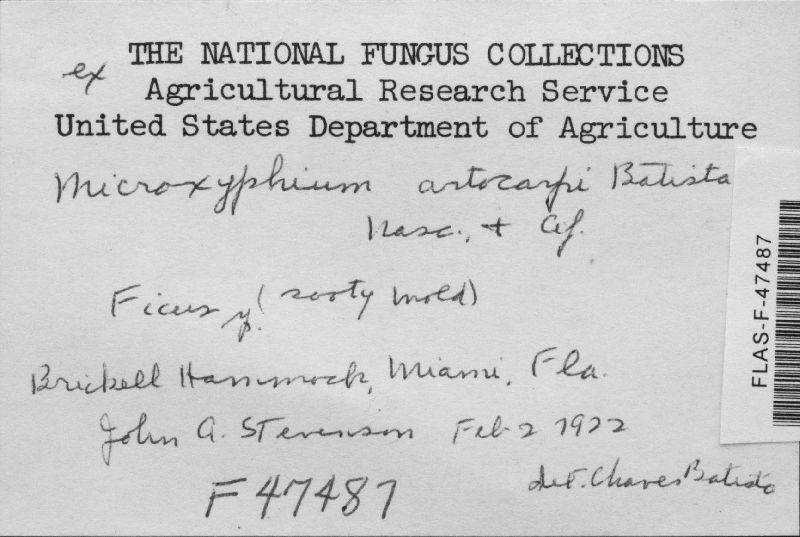 ex THE NATIONAL FUNGUS COLLECTIONS
Agricultural Research Service
United States Department of Agriculture
Microxyphium artocarpi Batista
Nasc., + Cif.
Ficus sp. (sooty mold)
Brickell Hammock, Miami, Fla.
John A. Stevenson Feb 2 1922
det. Chaves Batista
F47487
FLAS-F-47487